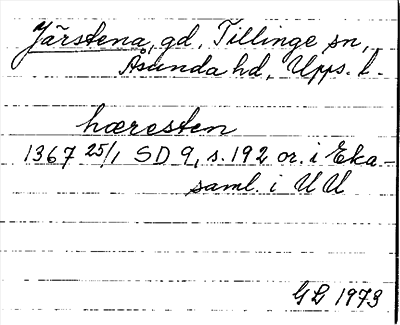 Järstena, gd, Tillinge sn,
Åsunda hd, Upps. l.
hæresten
1367 25/1 SD 9, s. 192 or. i Eka-
saml. i UU
GB 1973